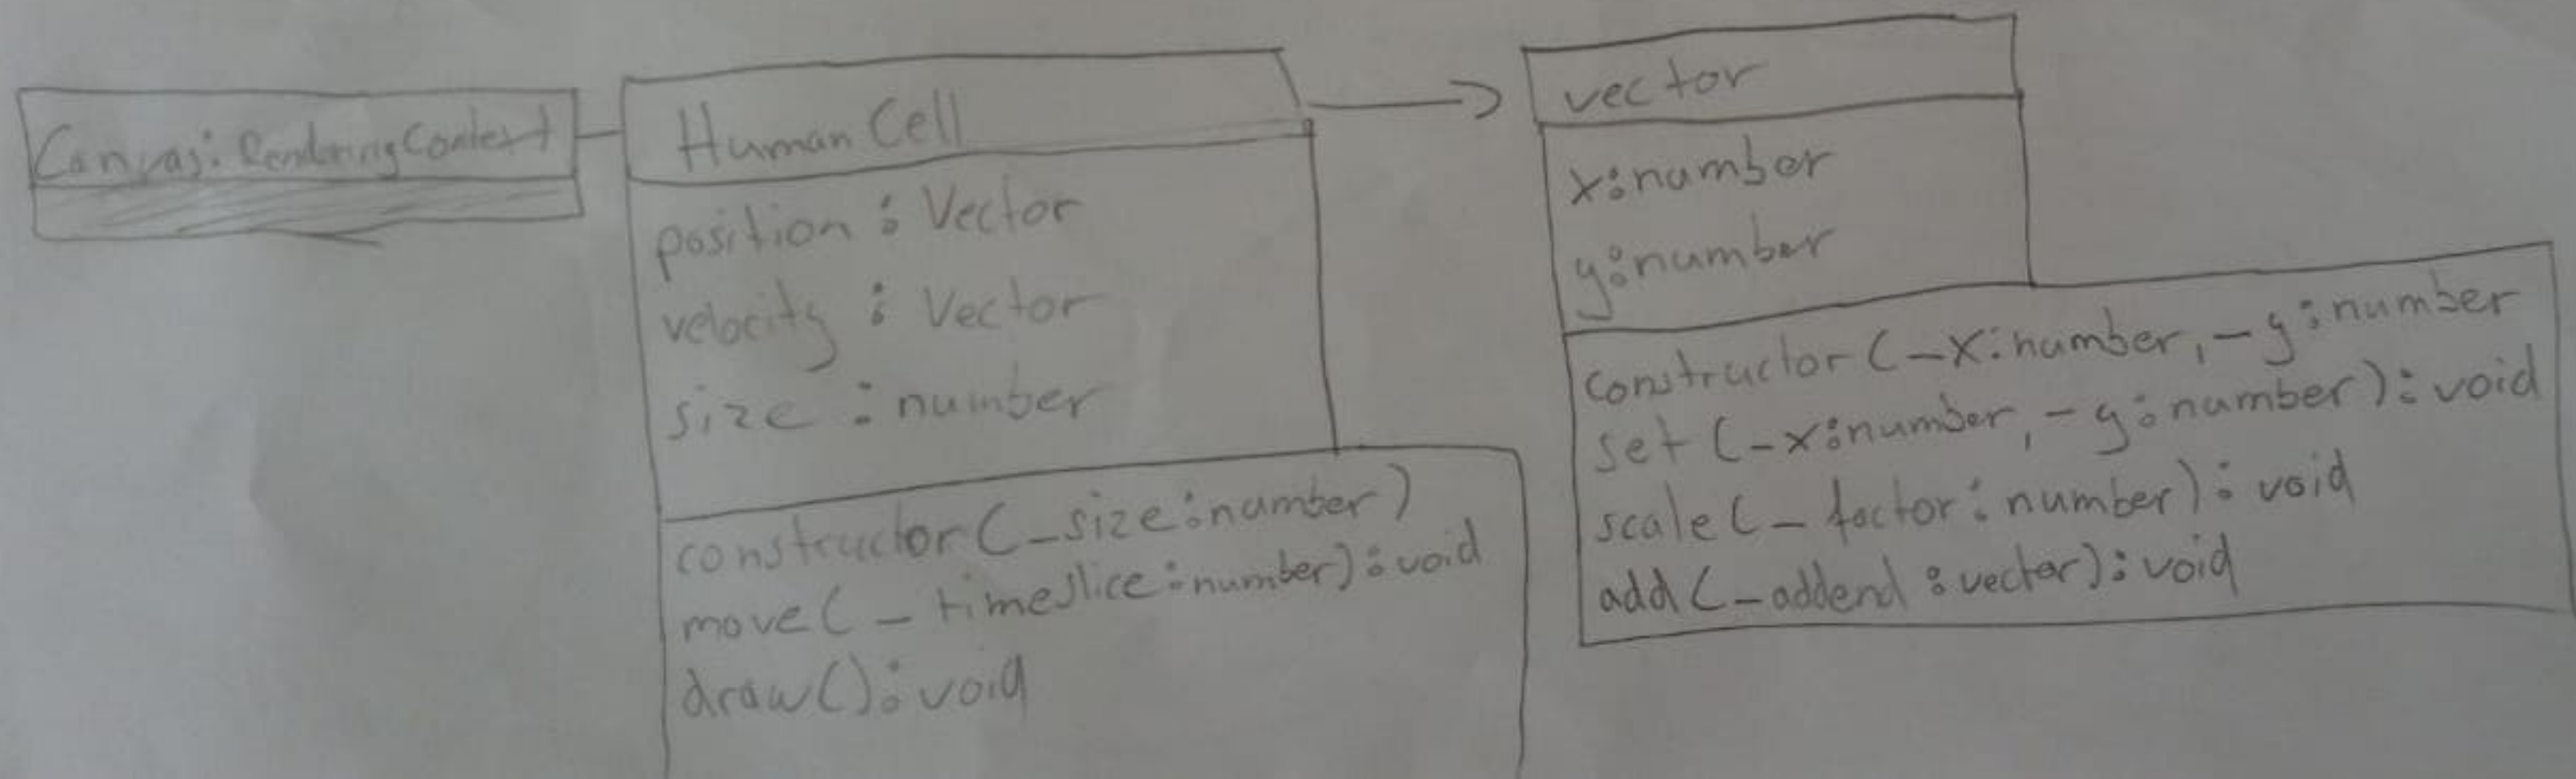 Canvas: RenderingContext
Human Cell
position : Vector
velocity : Vector
size : number
constructor (_size:number)
move (_timeslice:number):void
draw():void
vector
x:number
y:number
constructor (_x:number, _y:number
set (_x:number, _y:number):void
scale (_factor: number): void
add (_addend: vector): void